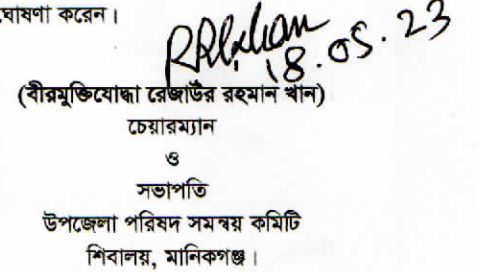 ঘোষণা করেন।
18.05.23
(বীরমুক্তিযোদ্ধা রেজাউর রহমান খান)
চেয়ারম্যান
ও
সভাপতি
উপজেলা পরিষদ সমন্বয় কমিটি
শিবালয়, মানিকগঞ্জ।